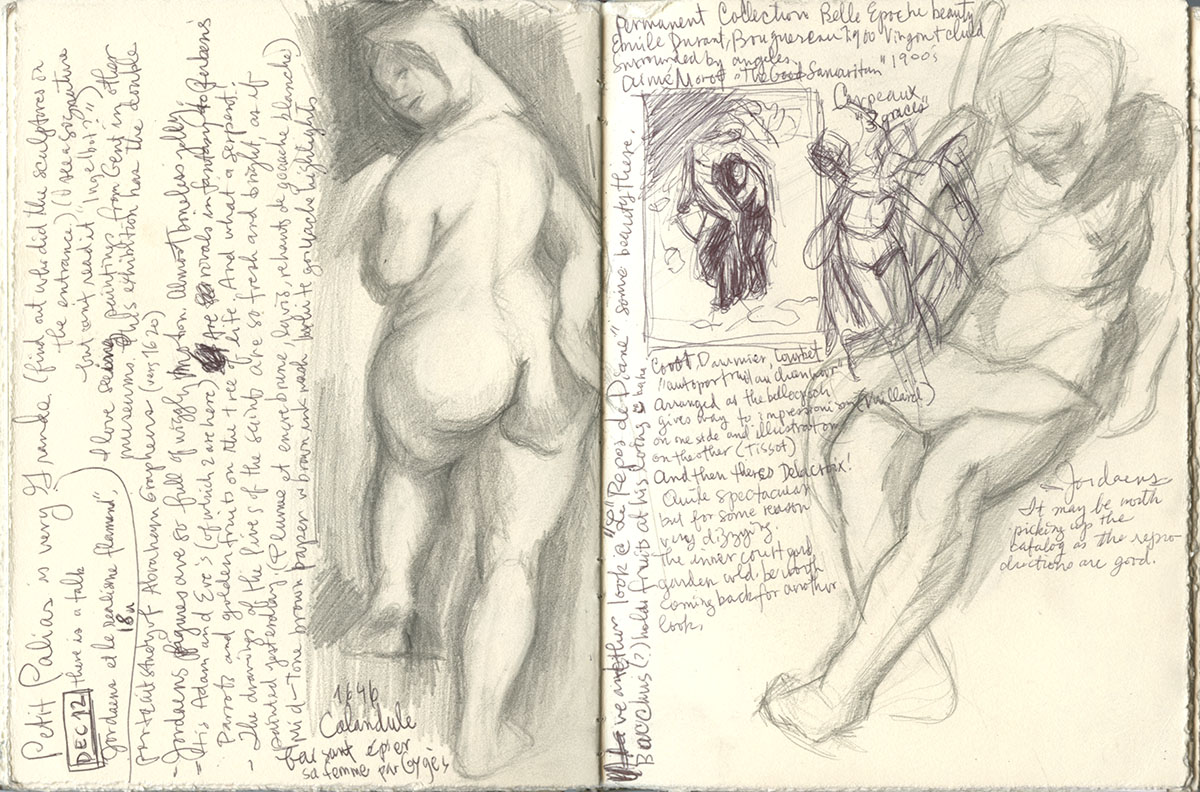 Petit Palias is very Grande (find out who did the sculptures on
the entrance.) (I see a signature
but cant read it "Ingelbot?")
DEC 12 there is a talk
Jordaens et le realisme flamend",
18h
I love seeing paintings from Gent in other
museums. This exhibition has the double
portrait study of Abraham Grapheus (very 1620)
- Jordaens figures are so full of wiggly motion. Almost boneless jelly
- His Adam and Eve's (of which 2 are here) rivals in fantasy to Ruben's
Parrots and golden fruits on the tree of life. And what a serpent!
- The drawings of the lives of the saints are so fresh and bright, as if
painted yesterday. (Plume et encre brune, lavis, rehauts de gouache blanche)
mid-tone brown paper w brown ink wash, white gouache highlights
1646
Calandule
faisant épier
sa femme par Gygès
Permanent Collection Belle Epoche beauty
Emile Durant, Bouguereau 1900 Virgon + child
surrounded by angels,
Aimé Morot "The Good Samaritan" 1900's
Carpeaux
"3 graces"
Corot, Daumier, Courbet
"autoportrait au chien noir"
Arranged at the belle epoch
gives way to impressionism (Vuillard)
on one side and illustration
on the other (Tissot)
And then theres Delacroix!
Quite spectacular
but for some reason
very dizzying.
The inner court yard
garden wld. be worth
coming back for another
look.
Have another look @ "Le "Repos de Diane" some beauty there.
Bacchus (?) holds fruits at his loins
Jordaens
It may be worth
picking up the
catalog as the repro-
ductions are good.